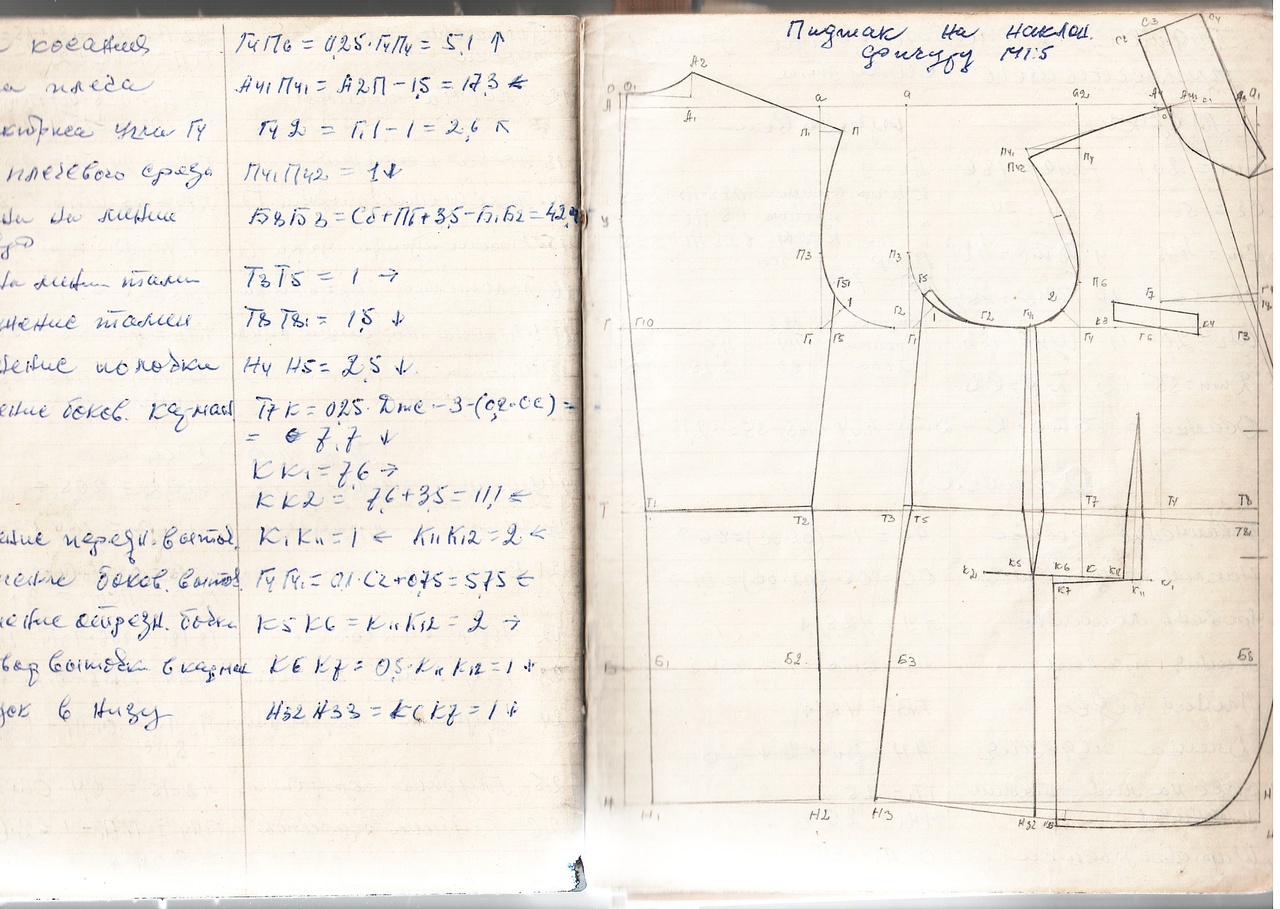 касания Г4П6 = 0,25·Г4П4 = 5,1 ↑
плеча А41П41 = А2П − 1,5 = 17,3 ←
угла Г4 Г4 2 = Г1 1 − 1 = 2,6 ↖
плечевого среза П41П42 = 1 ↓
на линии Б8Б3 = Сб+Пб+3,5−Б1Б2 =
линии талии Т3Т5 = 1 →
талии Т8Т81 = 1,5 ↓
полочки Н4Н5 = 2,5 ↓
боков. Т7К = 0,25·Дтс − 3 − (0,2·Ос) =
= 7,7 ↓
КК1 = 7,6 →
КК2 = 7,6 + 3,5 = 11,1 ←
передн. вытач. К1К11 = 1 ← К11К12 = 2 ←
боков. вытач. Г4Г41 = 0,1·Сг+0,75 = 5,75 ←
отрезн. бочка К5К6 = К11К12 = 2 →
вытачки в К6К7 = 0,5·К11К12 = 1 ↓
в низу Н32Н33 = К6К7 = 1 ↓
Пиджак на наклон.
фигуру М1:5
С3
С4
С2
А2
О О1
А
А1
а
а
а2
А4
П1
П
П41
П42
П4
У
П3
П3
П6
Г51
1
Г5
Г2
2
Г7
Г
Г10
Г1
Г5
Г1
1
Г2
Г41
Г4
К3
Г6
К4
Г3
Т
Т1
Т2
Т3
Т5
Т7
Т4
Т8
Т81
К21
К5
К6
К
К12
К7
К11
К1
Б
Б1
Б2
Б3
Б8
Н
Н1
Н2
Н3
Н32
Н33
Н